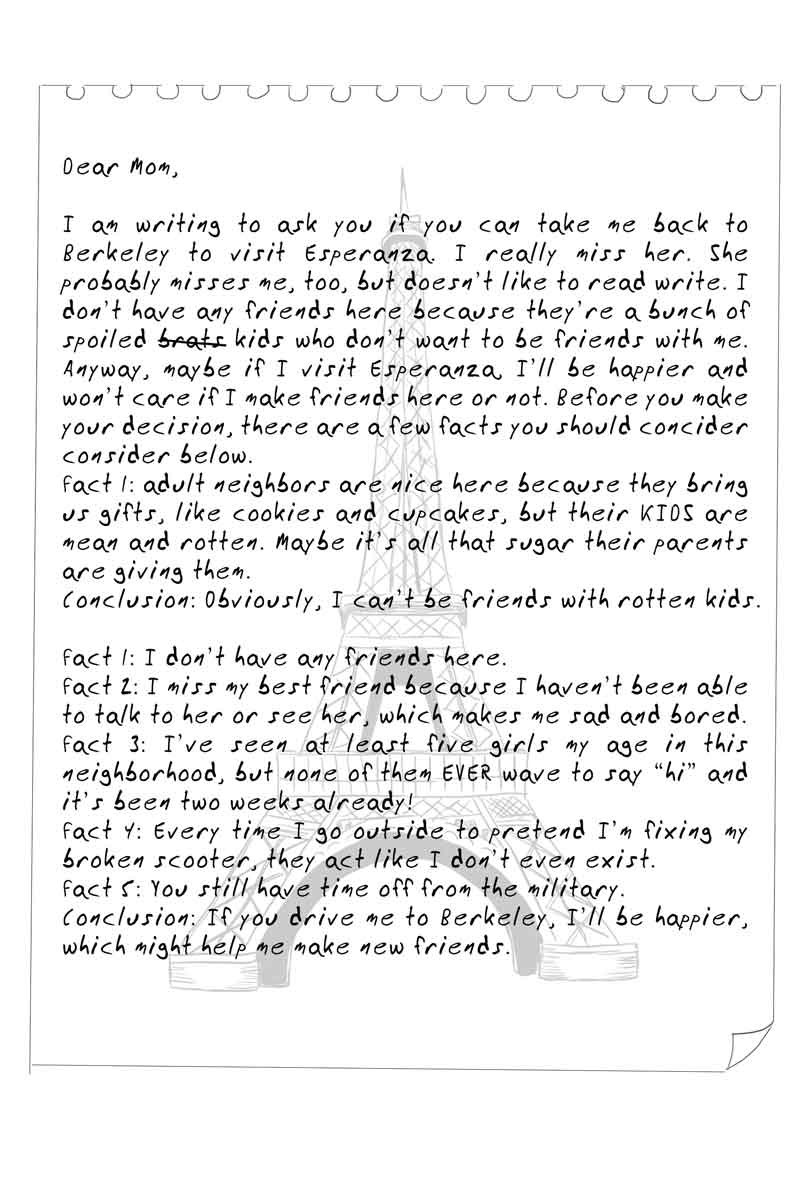 Dear Mom,
I am writing to ask you if you can take me back to
Berkeley to visit Esperanza. I really miss her. She
probably misses me, too, but doesn't like to read write. I
don't have any friends here because they're a bunch of
spoiled brats kids who don't want to be friends with me.
Anyway, maybe if I visit Esperanza, I'll be happier and
won't care if I make friends here or not. Before you make
your decision, there are a few facts you should concider
consider below.
Fact 1: adult neighbors are nice here because they bring
us gifts, like cookies and cupcakes, but their KIDS are
mean and rotten. Maybe it's all that sugar their parents
are giving them.
Conclusion: Obviously, I can't be friends with rotten kids.
Fact 1: I don't have any friends here.
Fact 2: I miss my best friend because I haven't been able
to talk to her or see her, which makes me sad and bored.
Fact 3: I've seen at least five girls my age in this
neighborhood, but none of them EVER wave to say “hi” and
it's been two weeks already!
Fact 4: Every time I go outside to pretend I'm fixing my
broken scooter, they act like I don't even exist.
Fact 5: You still have time off from the military.
Conclusion: If you drive me to Berkeley, I'll be happier,
which might help me make new friends.